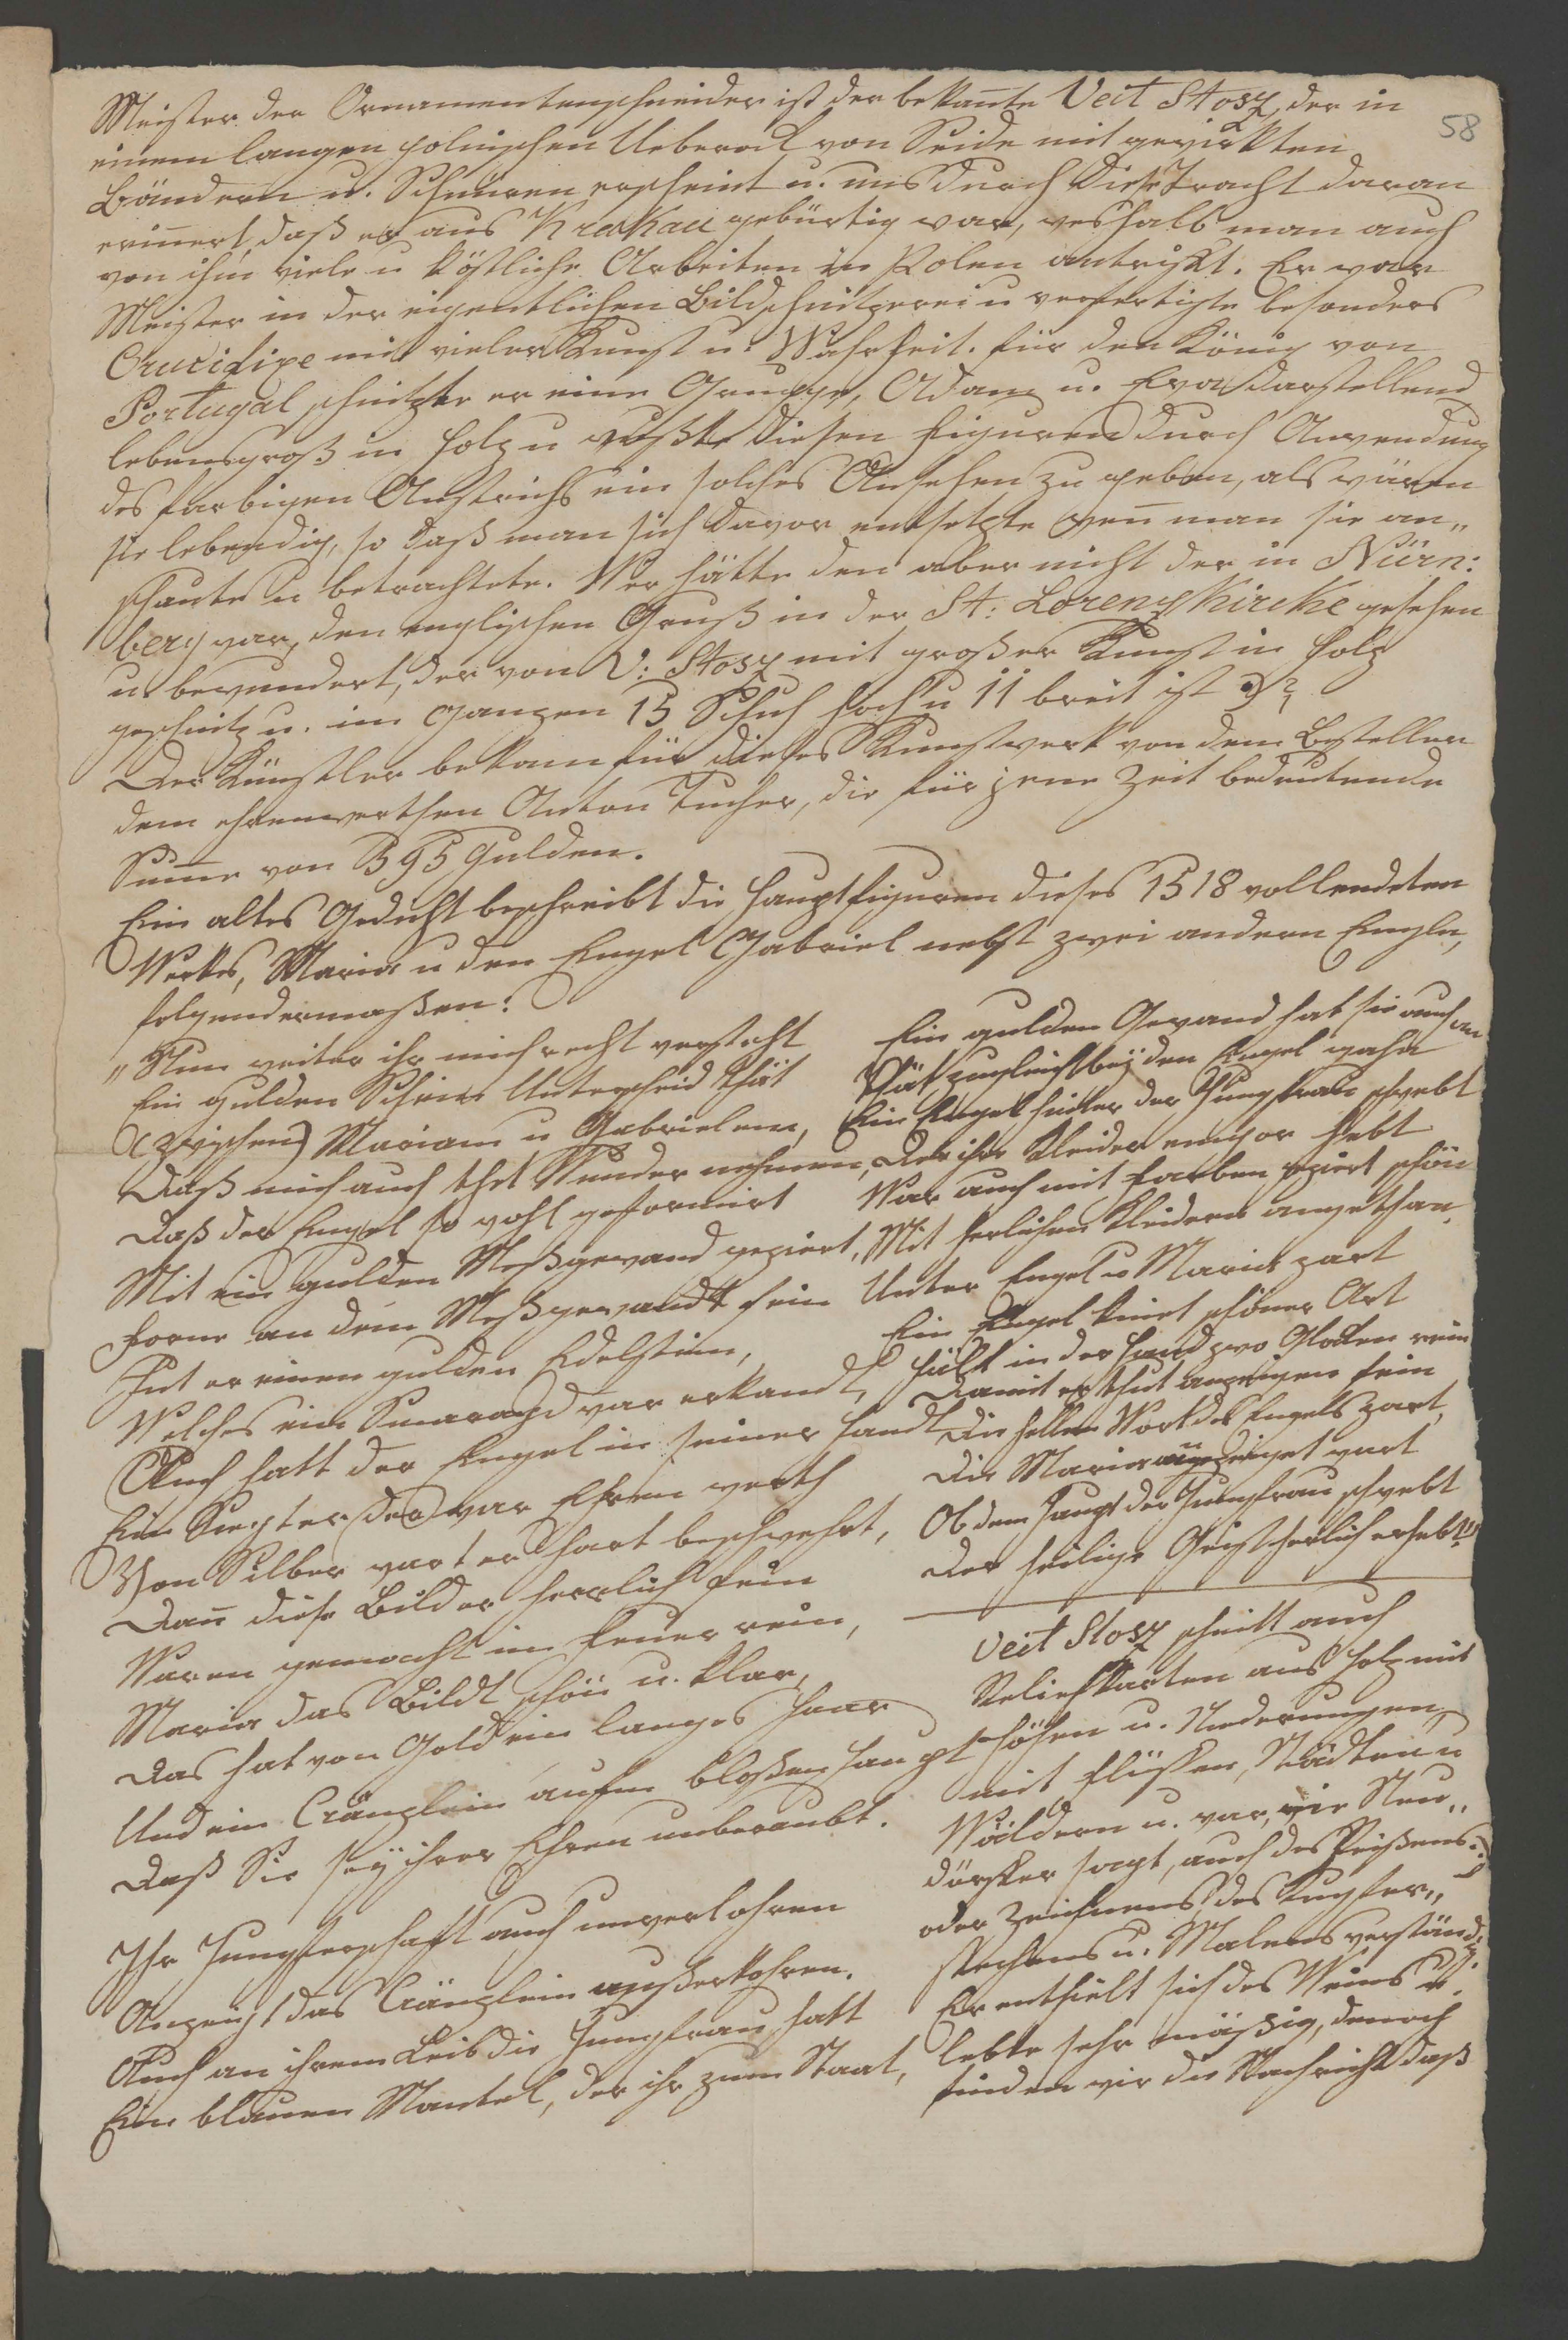 58
Meister der Ornamentenschneider ist der bekañte Veit Stosz, der in
einem langen polnischen Ueberock von Seide mit gewirkten
Bändern u. Schnüren erscheint u. uns durch diese Tracht daran
eriñert, daß er aus Krakau gebürtig war, weshalb man auch
von ihm viele u köstliche Arbeiten in Polen antrifft. Er war
Meister in der eigentlichen Bildschnitzerei u verfertigte besonders
Crucifixe mit vieler Kunst u. Wahrheit. Für den König von
Portugal schnitzte er eine Gruppe, Adam u. Eva darstellend
lebensgroß in Holz u wußte diesen Figuren durch Anwendung
des farbigen Anstrichs ein solches Ansehen zu geben, als wären
sie lebendig, so daß man sich davor entsetzte weñ man sie an„
schaute u betrachtete. Wer hätte den aber nicht der in Nürn:
berg war, den englischen Gruß in der St: Lorenz Kirche gesehen
u. bewundert, der von V: Stosz mit großer Kunst in Holz
geschnitz u. im Ganzen 15 Schuh hoch u 11 breit ist
Der Künstler bekam für dieses Kunstwerk von dem Besteller
dem ehrenwerthen Anton Tucher, die für jene Zeit bedeutende
Sum̄e von 395 Gulden.
Ein altes Gedicht beschreibt die Hauptfiguren dieses 1518 vollendeten
Werkes, Maria u den Engel Gabriel nebst zwei andern Engeln,
folgendermaßen:
„Nun weiter ihr mich recht versteht
Ein gulden Schein Unterscheid thät
(zwischen) Mariam u Gabrielem,
Daß mich auch thet Wunder nehmen,
Daß der Engel so wohl geformirt
Mit ein gulden Meßgewand geziert,
Forne an dem Meßgewandt sein
Hat er einen gulden Edelstein,
Welches ein Smaragd war erkandt,
Auch hatt der Engel in seiner Handt
Ein Scepter der war Ehren werth
Von Silber wart er hart beschwehrt,
Dañ diese Bilder herrlich fein
Waren gemacht im Feuer rein,
Maria das Bildt schön u. klar,
Das hat von Gold ein langes Haar
Und ein Cränzlein aufm bloßen Haupt
Daß Sie sey ihrer Ehren unberaubt.
Ihr Jungferschaft auch unverlohren
Anzeigt das Cränzlein außerkohren.
Auch an ihrem Leib die Jungfrau hatt
Ein blauen Mantel, der ihr zum Staat,
Ein gulden Gewand hat sie auch an
Thät zugleich bey den Engel gahn
Ein Engel hinter der Jungfrau schwebt
Der ihr Kleider empor hebt
War auch mit Farben geziert schön
Mit herlichen Kleidern angethan
Unter Engel u Maria zart
Ein Engel kniet schöner Art
Hält in der Hand zwo Glocken rein
Damit er thut anzeigen fein
Die hellen Wort des Engels zart,
Die Maria angezeiget wart
Ob dem Haupt der Jungfrau schwebt
Der heilige Geist herlich erhebt.“
Veit Stosz schnitt auch
Reliefkarten aus Holz mit
Höhen u. Niederungen,
mit Flüssen, Städten u
Wäldern u. war, wie Neu„
dörffer sagt, auch des Reißens
oder Zeichnens, des Kupfer„
stechens u. Malens verständig.
Er enthielt sich des Weins u.
lebte sehr mäßig, denoch
finden wir die Nachricht daß